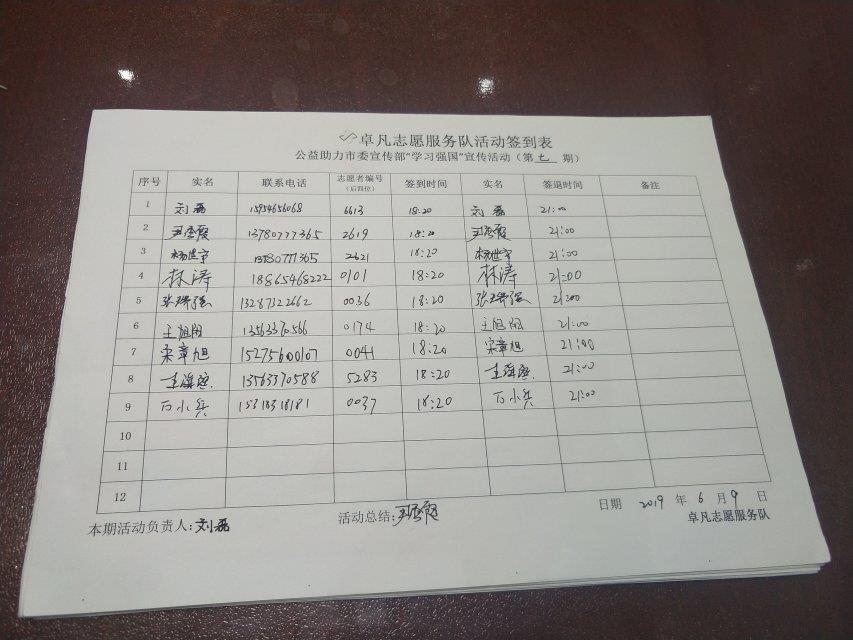 卓凡志愿服务队活动签到表
公益助力市委宣传部“学习强国”宣传活动（第 七 期）
序号 实名 联系电话 志愿者编号（后四位） 签到时间 实名 签退时间 备注
1 刘磊 15954656068 6613 18:20 刘磊 21:00
2 13780777365 2619 18:20 21:00
3 杨世宇 13780777365 2621 18:20 杨世宇 21:00
4 林涛 18865468222 0101 18:20 林涛 21:00
5 13287322662 0036 18:20 21:00
6 13563370566 0174 18:20 21:00
7 宋章旭 15275600107 0041 18:20 宋章旭 21:00
8 13563370588 5283 18:20 21:00
9 石小兵 15318318181 0037 18:20 石小兵 21:00
10
11
12
本期活动负责人：刘磊 活动总结： 日期 2019 年 6 月 9 日
卓凡志愿服务队